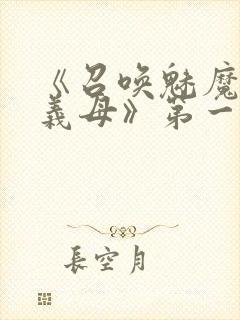 《召唤魅魔
义母》第一
长空月